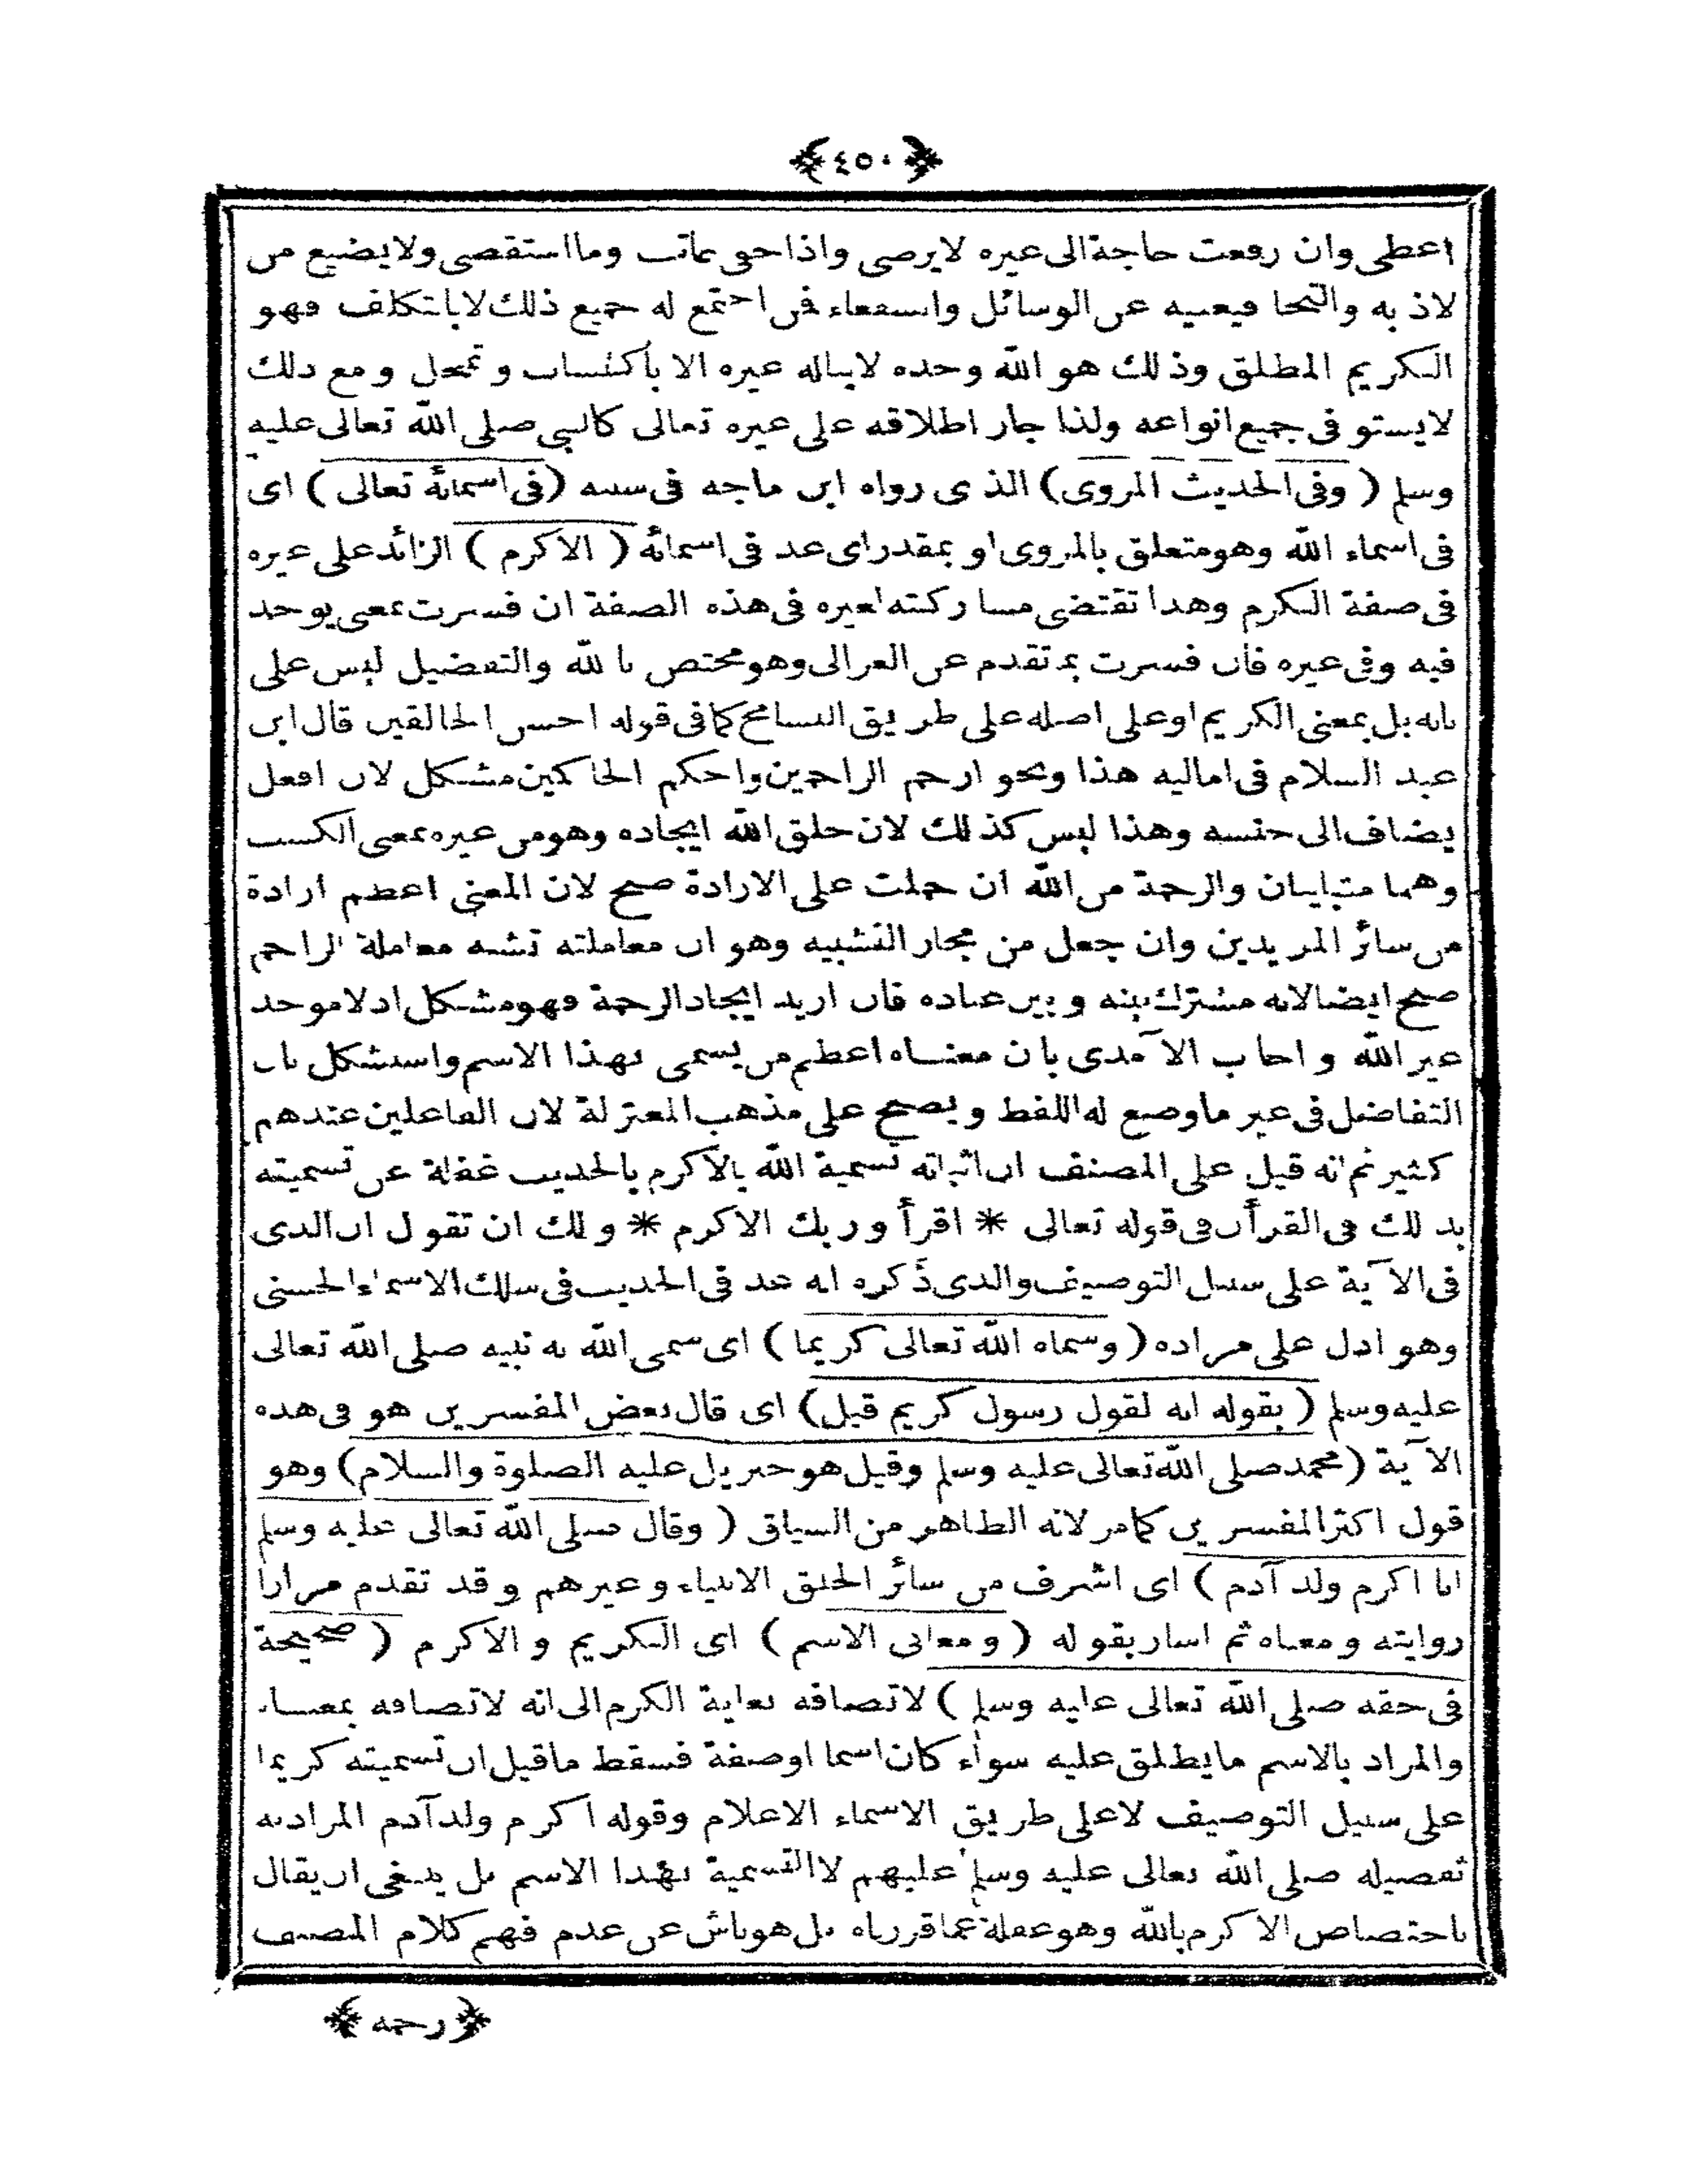 ﴿٤٥٠﴾
اعطى وان رفعت حاجة الى غيره لا يرضى واذا جفى عاتب وما استقصى ولا يضيع من
لاذ به والتجا فيغنيه عن الوسائل والشفعاء فمن اجتمع له جميع ذلك لا بالتكلف فهو
الكريم المطلق وذلك هو الله وحده لا يناله غيره الا باكتساب وتمحل ومع ذلك
لا يستوفى جميع انواعه ولذا جاز اطلاقه على غيره تعالى كالنبي صلى الله تعالى عليه
وسلم ( وفى الحديث المروى ) الذى رواه ابن ماجه فى سننه ( فى اسمائه تعالى ) اى
فى اسماء الله وهو متعلق بالمروى او بمقدر اى عد فى اسمائه ( الاكرم ) الزائد على غيره
فى صفة الكرم وهذا تقتضى مشاركته لغيره فى هذه الصفة ان فسرت بمعنى يوجد
فيه وفى غيره فان فسرت بما تقدم عن الغزالى وهو مختص بالله والتفضيل ليس على
بابه بل بمعنى الكريم او على اصله على طريق التسامح كما فى قوله احسن الخالقين قال ابن
عبد السلام فى اماليه هذا ونحو ارحم الراحمين واحكم الحاكمين مشكل لان افعل
يضاف الى جنسه وهذا ليس كذلك لان خلق الله ايجاده وهو من غيره بمعنى الكسب
وهما متباينان والرحمة من الله ان حملت على الارادة صح لان المعنى اعظم ارادة
من سائر المريدين وان جعل من مجاز التشبيه وهو ان معاملته تشبه معاملة الراحم
صح ايضا لانه مشترك بينه وبين عباده فان اريد ايجاد الرحمة فهو مشكل اذ لا موجد
غير الله واجاب الآمدى بان معناه اعظم من يسمى بهذا الاسم واستشكل بان
التفاضل فى غير ما وضع له اللفظ ويصح على مذهب المعتزلة لان الفاعلين عندهم
كثير ثم انه قيل على المصنف ان اثباته تسمية الله بالاكرم بالحديث غفلة عن تسميته
بذلك فى القرأن فى قوله تعالى * اقرأ وربك الاكرم * ولك ان تقول ان الذى
فى الآية على سبيل التوصيف والذى ذكره انه عد فى الحديث فى سلك الاسماء الحسنى
وهو ادل على مراده ( وسماه الله تعالى كريما ) اى سمى الله به نبيه صلى الله تعالى
عليه وسلم ( بقوله انه لقول رسول كريم قيل ) اى قال بعض المفسرين هو فى هذه
الآية ( محمد صلى الله تعالى عليه وسلم وقيل هو جبريل عليه الصلوة والسلام ) وهو
قول اكثر المفسرين كما مر لانه الظاهر من السياق ( وقال صلى الله تعالى عليه وسلم
انا اكرم ولد آدم ) اى اشرف من سائر الخلق الانبياء وغيرهم وقد تقدم مرارا
روايته ومعناه ثم اشار بقوله ( ومعانى الاسم ) اى الكريم والاكرم ( صحيحة
فى حقه صلى الله تعالى عليه وسلم ) لاتصافه بغاية الكرم الى انه لاتصافه بمعناه
والمراد بالاسم ما يطلق عليه سواء كان اسما او صفة فسقط ما قيل ان تسميته كريما
على سبيل التوصيف لا على طريق الاسماء الاعلام وقوله اكرم ولد آدم المراد به
تفضيله صلى الله تعالى عليه وسلم عليهم لا التسمية بهذا الاسم بل ينبغى ان يقال
باختصاص الاكرم بالله وهو غفلة عما قررناه بل هو ناش عن عدم فهم كلام المصنف
﴿رحمه﴾